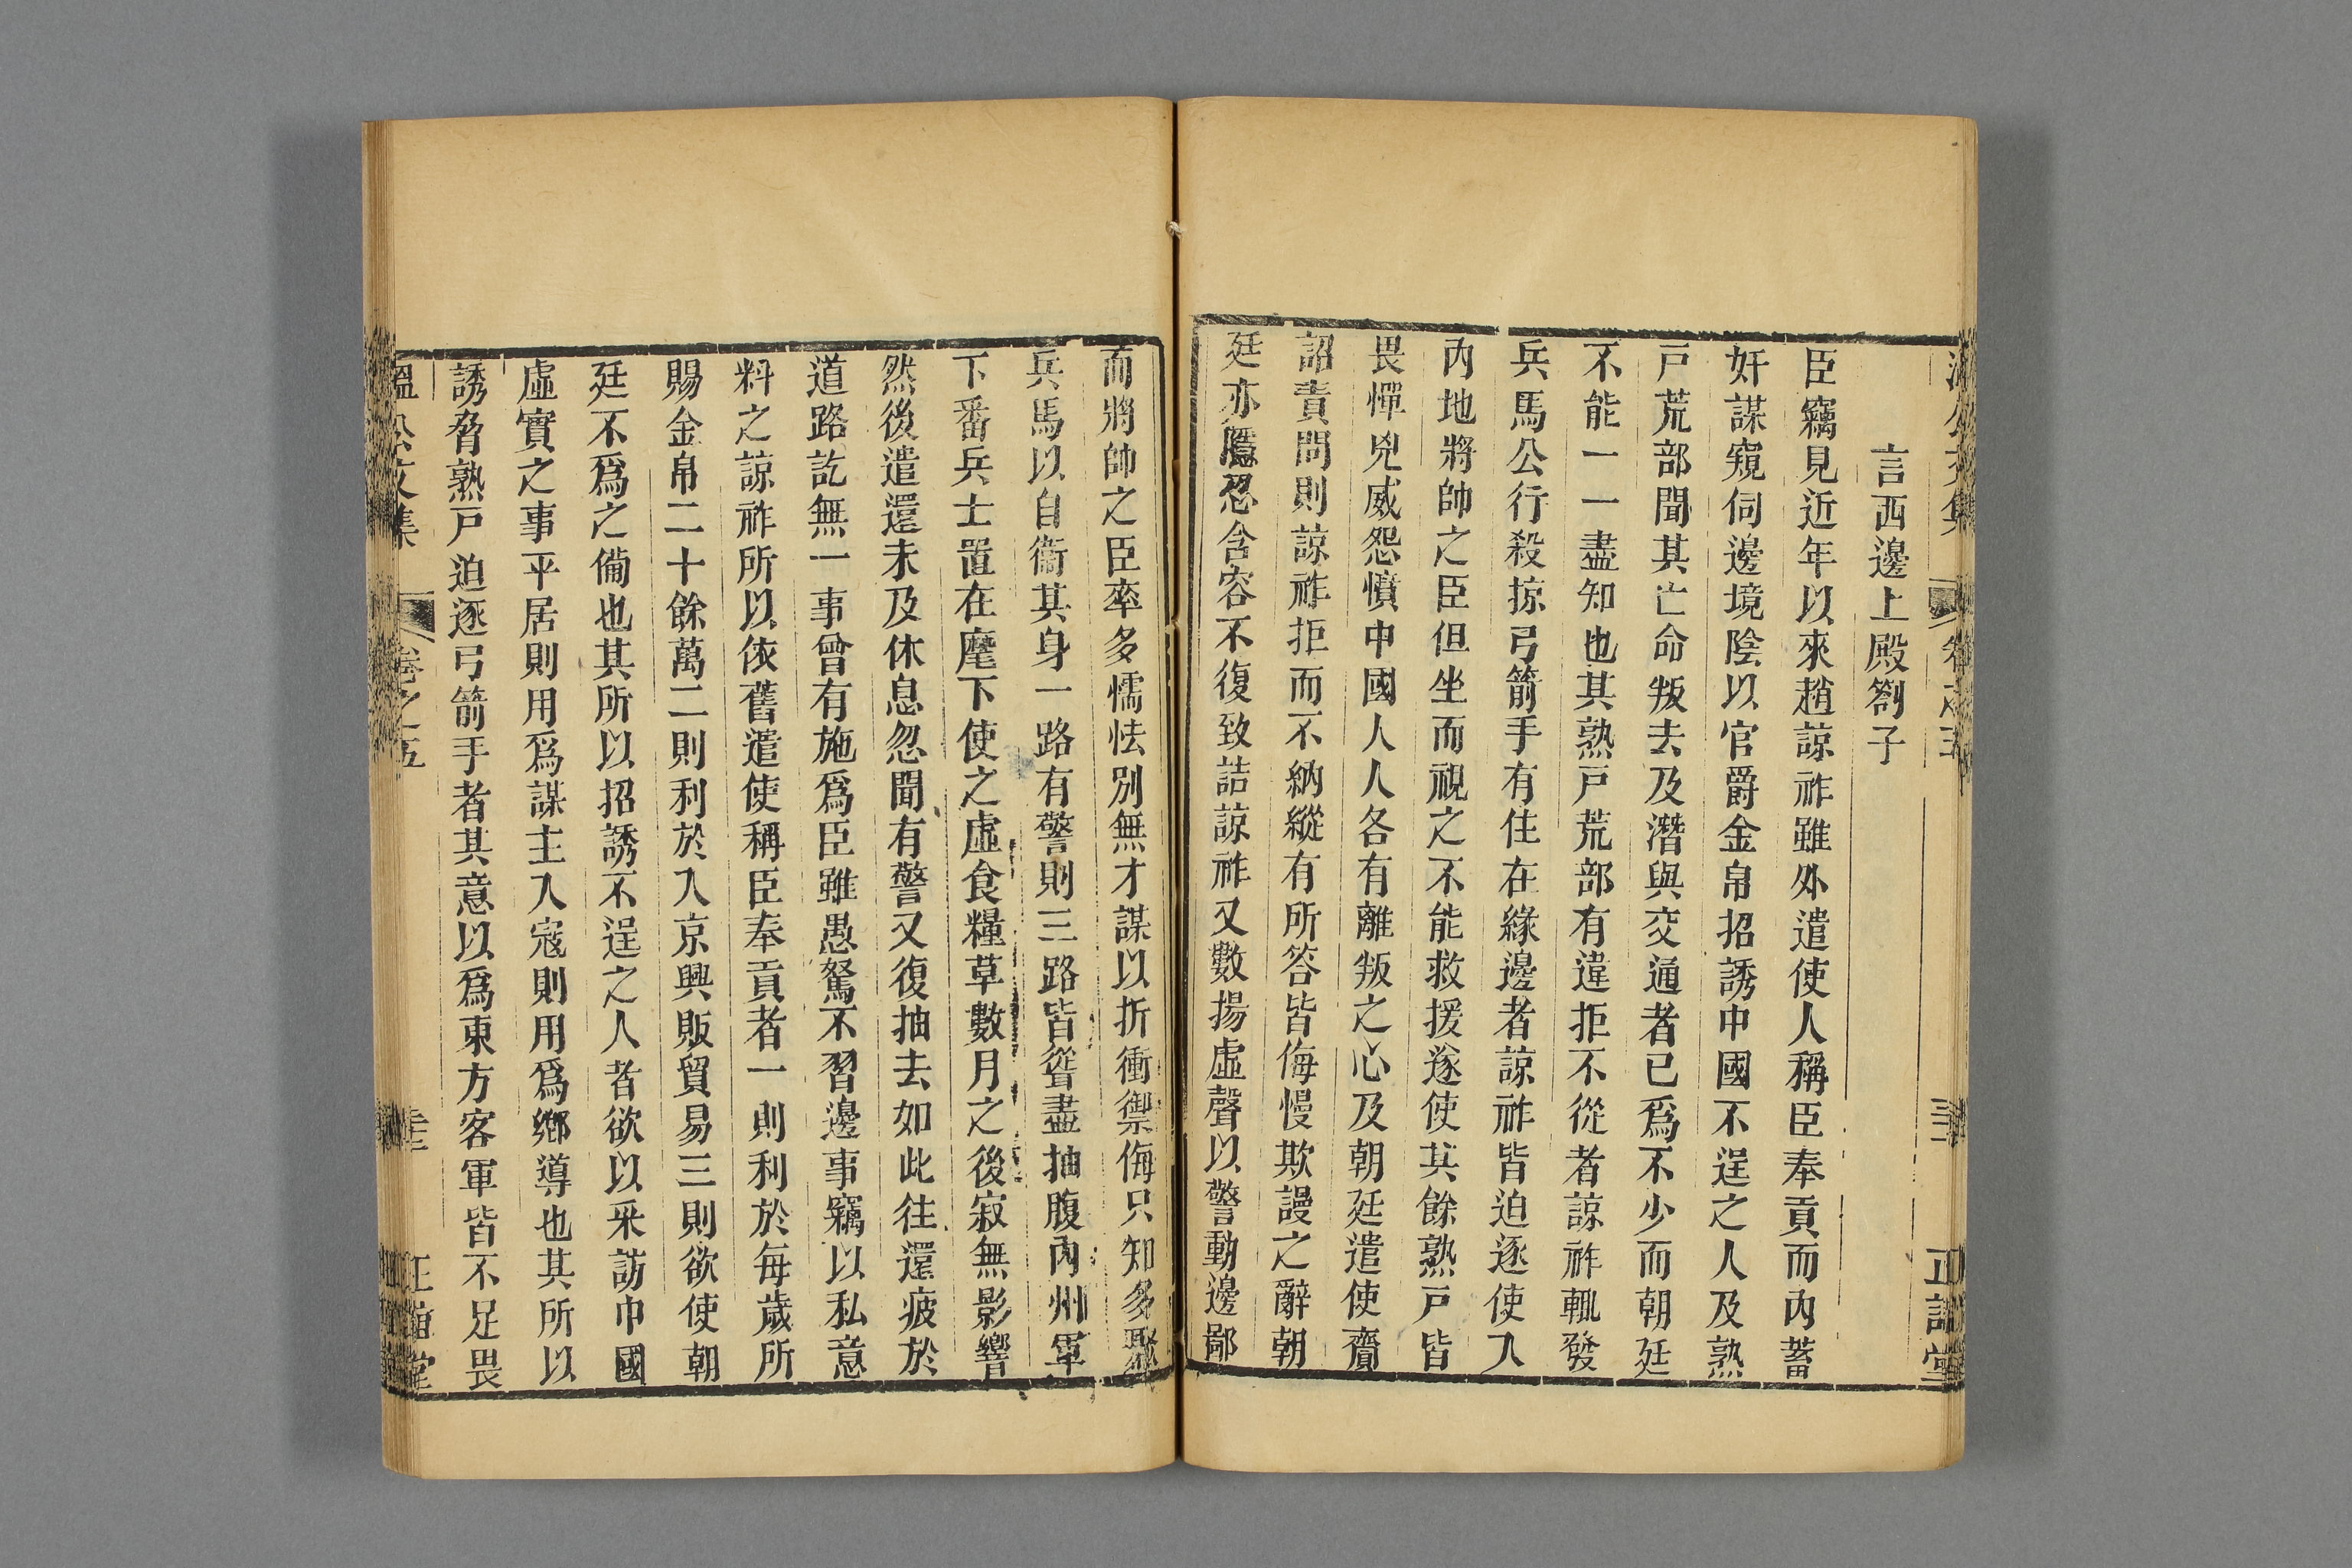 言西邊上殿劄子
臣竊見近年以來趙諒祚雖外遣使人稱臣奉貢而內蓄
奸謀窺伺邊境陰以官爵金帛招誘中國不逞之人及熟
戶荒部聞其亡命叛去及潛與交通者已爲不少而朝廷
不能一一盡知也其熟戶荒部有違拒不從者諒祚輒發
兵馬公行殺掠弓箭手有住在緣邊者諒祚皆迫逐使入
內地將帥之臣但坐而視之不能救援遂使其餘熟戶皆
畏憚兇威怨憤中國人人各有離叛之心及朝廷遣使齎
詔責問則諒祚拒而不納縱有所答皆侮慢欺謾之辭朝
廷亦隱忍含容不復致詰諒祚又數揚虛聲以警動邊鄙
而將帥之臣率多懦怯別無才謀以折衝禦侮只知多聚
兵馬以自衞其身一路有警則三路皆聳盡抽腹內州軍
下番兵士置在麾下使之虛食糧草數月之後寂無影響
然後遣還未及休息忽聞有警又復抽去如此往還疲於
道路訖無一事曾有施爲臣雖愚駑不習邊事竊以私意
料之諒祚所以依舊遣使稱臣奉貢者一則利於每歲所
賜金帛二十餘萬二則利於入京興販貿易三則欲使朝
廷不爲之備也其所以招誘不逞之人者欲以采訪中國
虛實之事平居則用爲謀主入寇則用爲鄉導也其所以
誘脅熟戶迫逐弓箭手者其意以爲東方客軍皆不足畏
溫公文集 卷之五 正誼堂